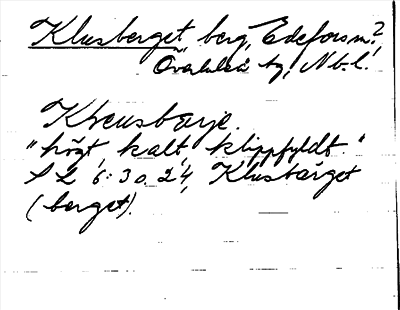 Klusberget, berg, Edefors sn?
Överluleå tg, Nb.l.
Kleusbärje.
"högt, kalt, klippfyldt."
SL 6:30.24, Klusbärget
(berget).